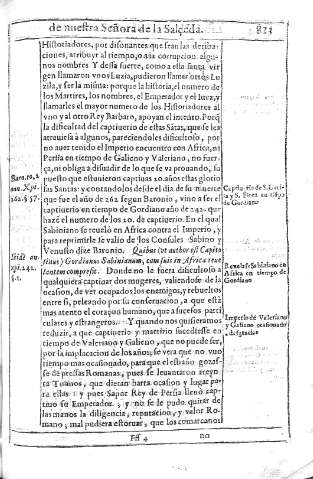 de nuestra Señora de la Salçeda. 823
Historiadores, por disonantes que sean las deriba-
ciones, atribuyr al tiempo, o a la corrupcion algu-
nos nombres Y desta suerte, como a esta santa vir
gen llamaron vnos Luzia, pudieron llamer otros Lu
zila, y ser la misma: porque la historia, el numero de
los Martires, los nombres, el Emperador y el Iuez, y
llamarles el mayor numero de los Historiadores al
vno y al otro Rey Barbaro, apoyan el intento. Porq̃
la dificultad del captiuerio de estas Sãtas, que se les
atrouiessa à algunos, pareciendoles dificultoso, por
no auer tenido el Imperio encuentro con Africa, ni
Persia en tiempo de Galieno y Valeriano, no fuer-
ça, ni obliga à desuiar de lo que se va prouando, su
puesto que estuuieron captiuas 20. años estas glorio
sas Santas: y contandolos desde el dia de su muerte
que fue el año de 262 segun Baronio, vino a ser el
captiuerio en tiempo de Gordiano año de 242. que
hazè el numero de los 20. de captiuerio. En el qual
Sabiniano se reuelò en Africa contra el Imperio, y
para reprimirle se valio de los Consules Sabino y
Venusto dize Baronio. Quibus (vt author est Capito
linus) Gordianus Sabinianum, cum suis in Africa reuel
lentem compressit. Donde no le fuera dificultoso a
qualquiera captiuar dos mugeres, valiendose de la
ocasion, de ver ocupados los enemigos, y rebueltos
entre si, peleando por su conseruacion, a que està
mas atento el coraçon humano, que a sucesos parti
culares y estrangeros. Y quando no quisieramos
reduzir, a que captiuerio y martirio sucediesse en
tiempo de Valeriano y Galieno, que no puede ser,
por la implicacion de los años, se vera que no vuo
tiempo mas ocasionado, para que el estraño gozas-
se de pressas Romanas, pues se leuantaron treynta
Tiranos, que dieran harta ocasion y lugar pa-
ra ellas: y pues Sapor Rey de Persia lleuò cap-
tiuo su Emperador, y no se le pudo quitar de
las manos la diligencia, reputacion, y valor Ro-
mano, mal pudiera estoruar, que los comarcanos
Fff 4 no
Baro. to. 2
ann. Xpi.
262. § 57.
xpi. 242.
§. 1.
Captiuerio de S. Luci-
en tiẽpo
de Gordiano
Reuelase Sabiniano en
Africa en tiempo de
Gordiano
Imperio de Valeriano
y Galieno ocasionado